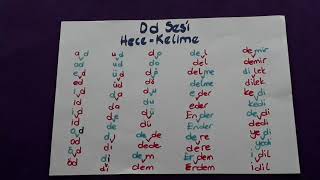 Dd Sesi
Hece-Kelime
ad ud do del demir
ad ud do del demir
ed üd dö delme dilek
ed üd dö delme dilek
ıd da du eder kedi
ıd da du eder kedi
id de dü Ender dedi
id de dü Ender dedi
od dı dede dere yedi
od dı dede dere yedi
öd di dem Erdem idil
öd di dem Erdem idil